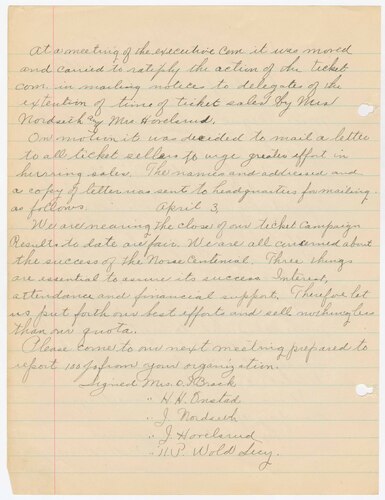 At a meeting of the executive Com it was moved
and carried to ratifply the action of the ticket
com. in mailing notices to delegates of the
extention of time of ticket sales by Mrs
Nordsieth and Mrs Hovelsrud.
On motion it was decided to mail a letter
to all ticket sellers to urge greater effort in
hurring sales. The names and addresses and
a copy of letter was sent to headquarties for mailing
as follows. April 3,
We are nearing the close of our ticket Campaign
Results to date are fair. We are all concerned about
the success of the Norse Centenial. Three things
are essential to assure its success. Interest,
attendance and financial support. Therefore let
us put forth our best efforts and sell nothing less
than our quota.
Please come to our next meeting prepared to
report 100% from your organization.
Signed Mrs. O.
" H. H. Onstad
" J. Nordsieth
" J. Hovelsrud
" Wold Secy.